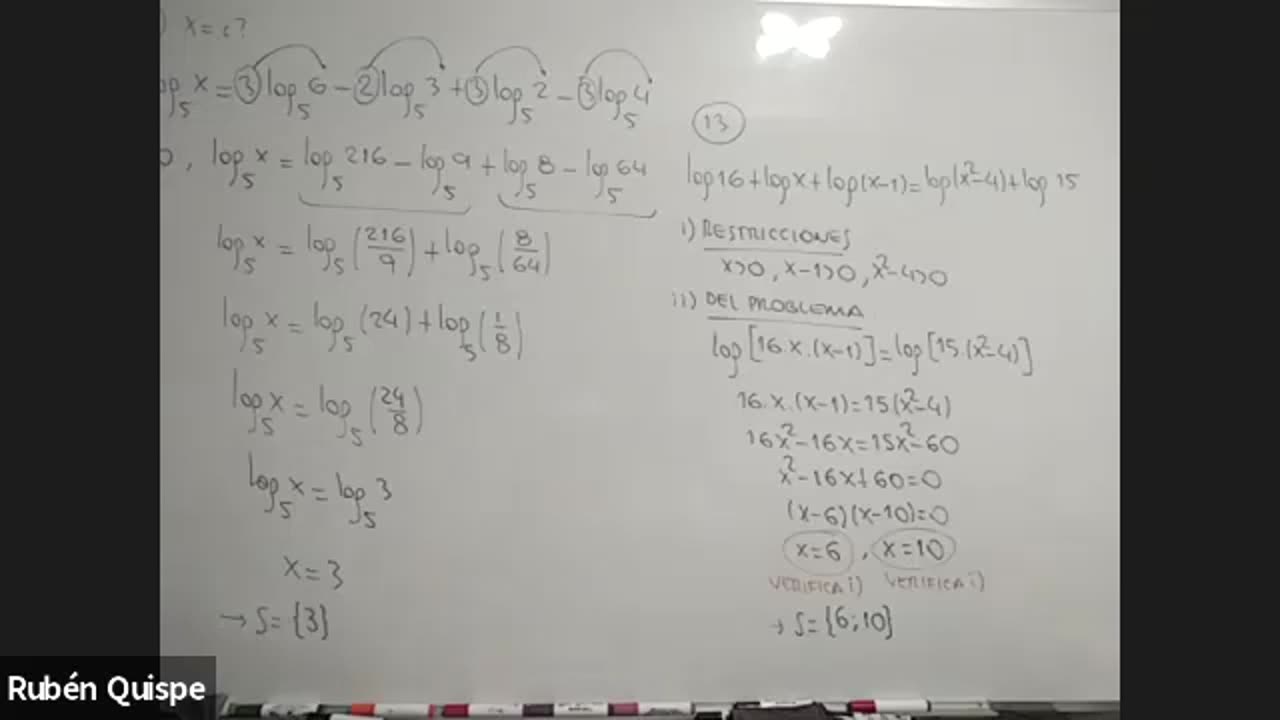 ) x=¿?
log₅ x = 3 log₅ 6 − 2 log₅ 3 + 3 log₅ 2 − 3 log₅ 4
, log₅ x = log₅ 216 − log₅ 9 + log₅ 8 − log₅ 64
log₅ x = log₅ (216/9) + log₅ (8/64)
log₅ x = log₅ (24) + log₅ (1/8)
log₅ x = log₅ (24/8)
log₅ x = log₅ 3
x = 3
→ S = {3}
13
log 16 + log x + log (x-1) = log (x²-4) + log 15
i) RESTRICCIONES
x>0, x-1>0, x²-4>0
ii) DEL PROBLEMA
log [16.x.(x-1)] = log [15.(x²-4)]
16.x.(x-1) = 15(x²-4)
16x²-16x = 15x²-60
x²-16x+60=0
(x-6)(x-10)=0
x=6, x=10
VERIFICA i) VERIFICA i)
→ S={6;10}
Rubén Quispe